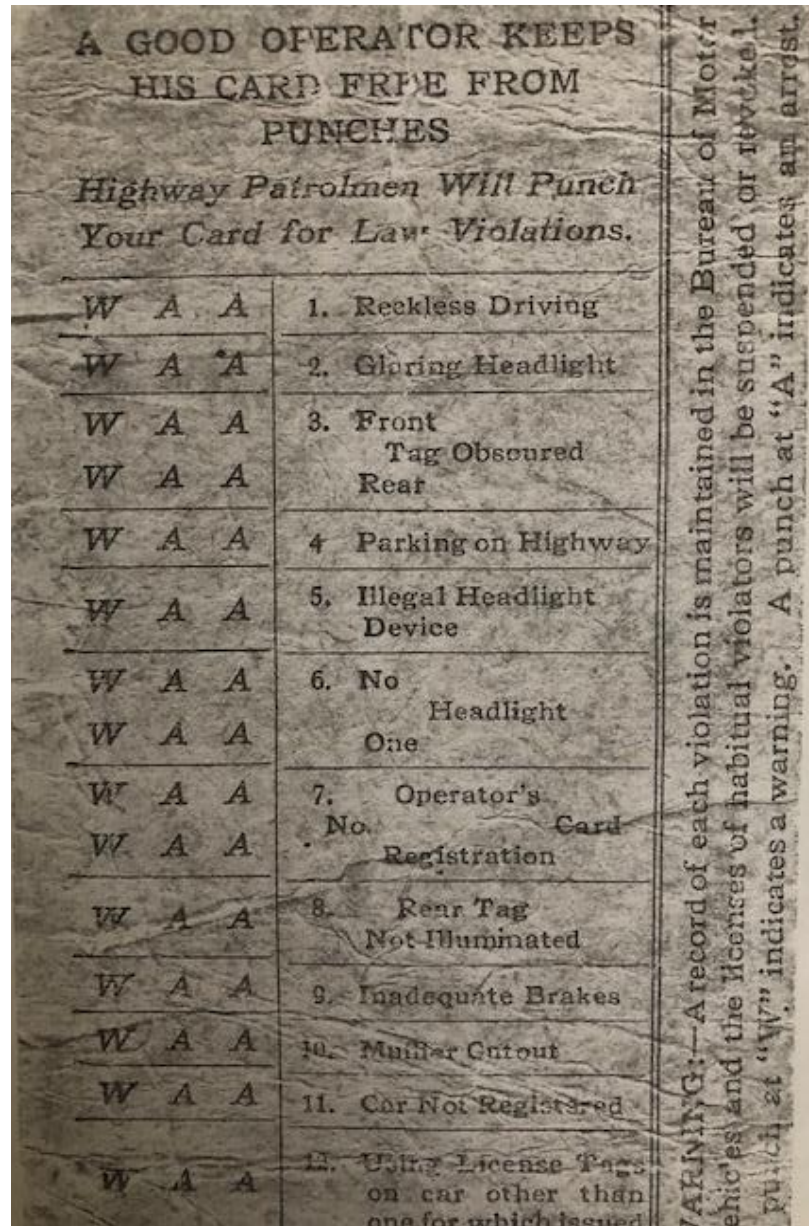 A GOOD OPERATOR KEEPS
HIS CARD FREE FROM
PUNCHES
Highway Patrolmen Will Punch
Your Card for Law Violations.
W A A 1. Reckless Driving
W A A 2. Glaring Headlight
W A A 3. Front
Tag Obscured
W A A Rear
W A A 4 Parking on Highway
W A A 5. Illegal Headlight
Device
W A A 6. No
Headlight
W A A One
W A A 7. Operator's
No. Card
W A A Registration
W A A 8. Rear Tag
Not Illuminated
W A A 9. Inadequate Brakes
W A A 10. Muffler Cutout
W A A 11. Car Not Registered
W A A 12. Using License Tags
on car other than
one for which issued
ARNING:—A record of each violation is maintained in the Bureau of Motor
ehicles and the licenses of habitual violators will be suspended or revoked.
punch at "W" indicates a warning. A punch at "A" indicates an arrest.